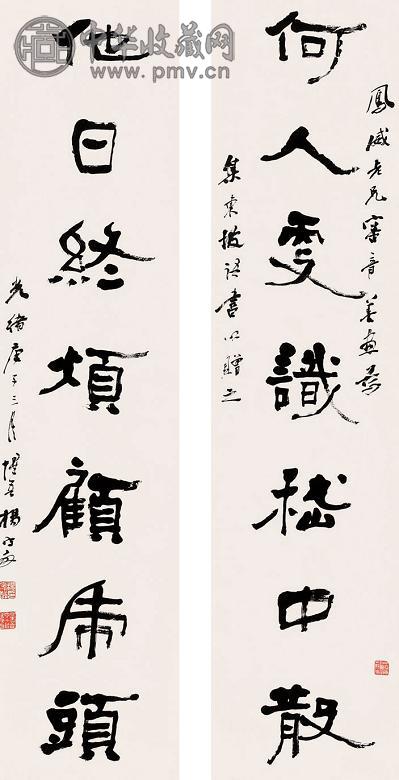 中华收藏网
www.pmv.cn
鳳威老兄審音善畫為
何人更識嵇中散
集東坡語書以贈之
他日終煩顧虎頭
光緒庚子三月惺吾楊守敬